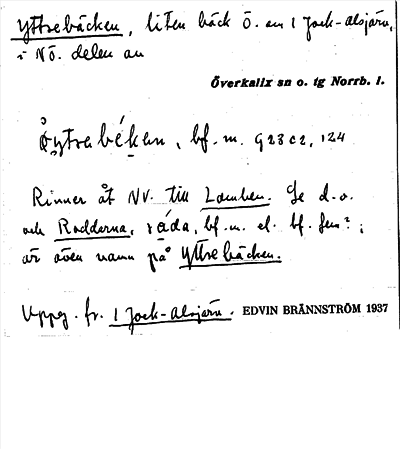 Yttrebäcken, liten bäck Ö. om 1 Jock-alsjärn,
i NÖ. delen av
Överkalix sn o. tg Norrb. l.
bf. m. 923 c2, 124
Rinner åt NV. till Lomben. Se d. o.
och Rodderna, råda, bf. m. el. bf. fem?;
är även namn på Yttrebäcken.
Uppg. fr. 1 Jock-alsjärn. EDVIN BRÄNNSTRÖM 1937